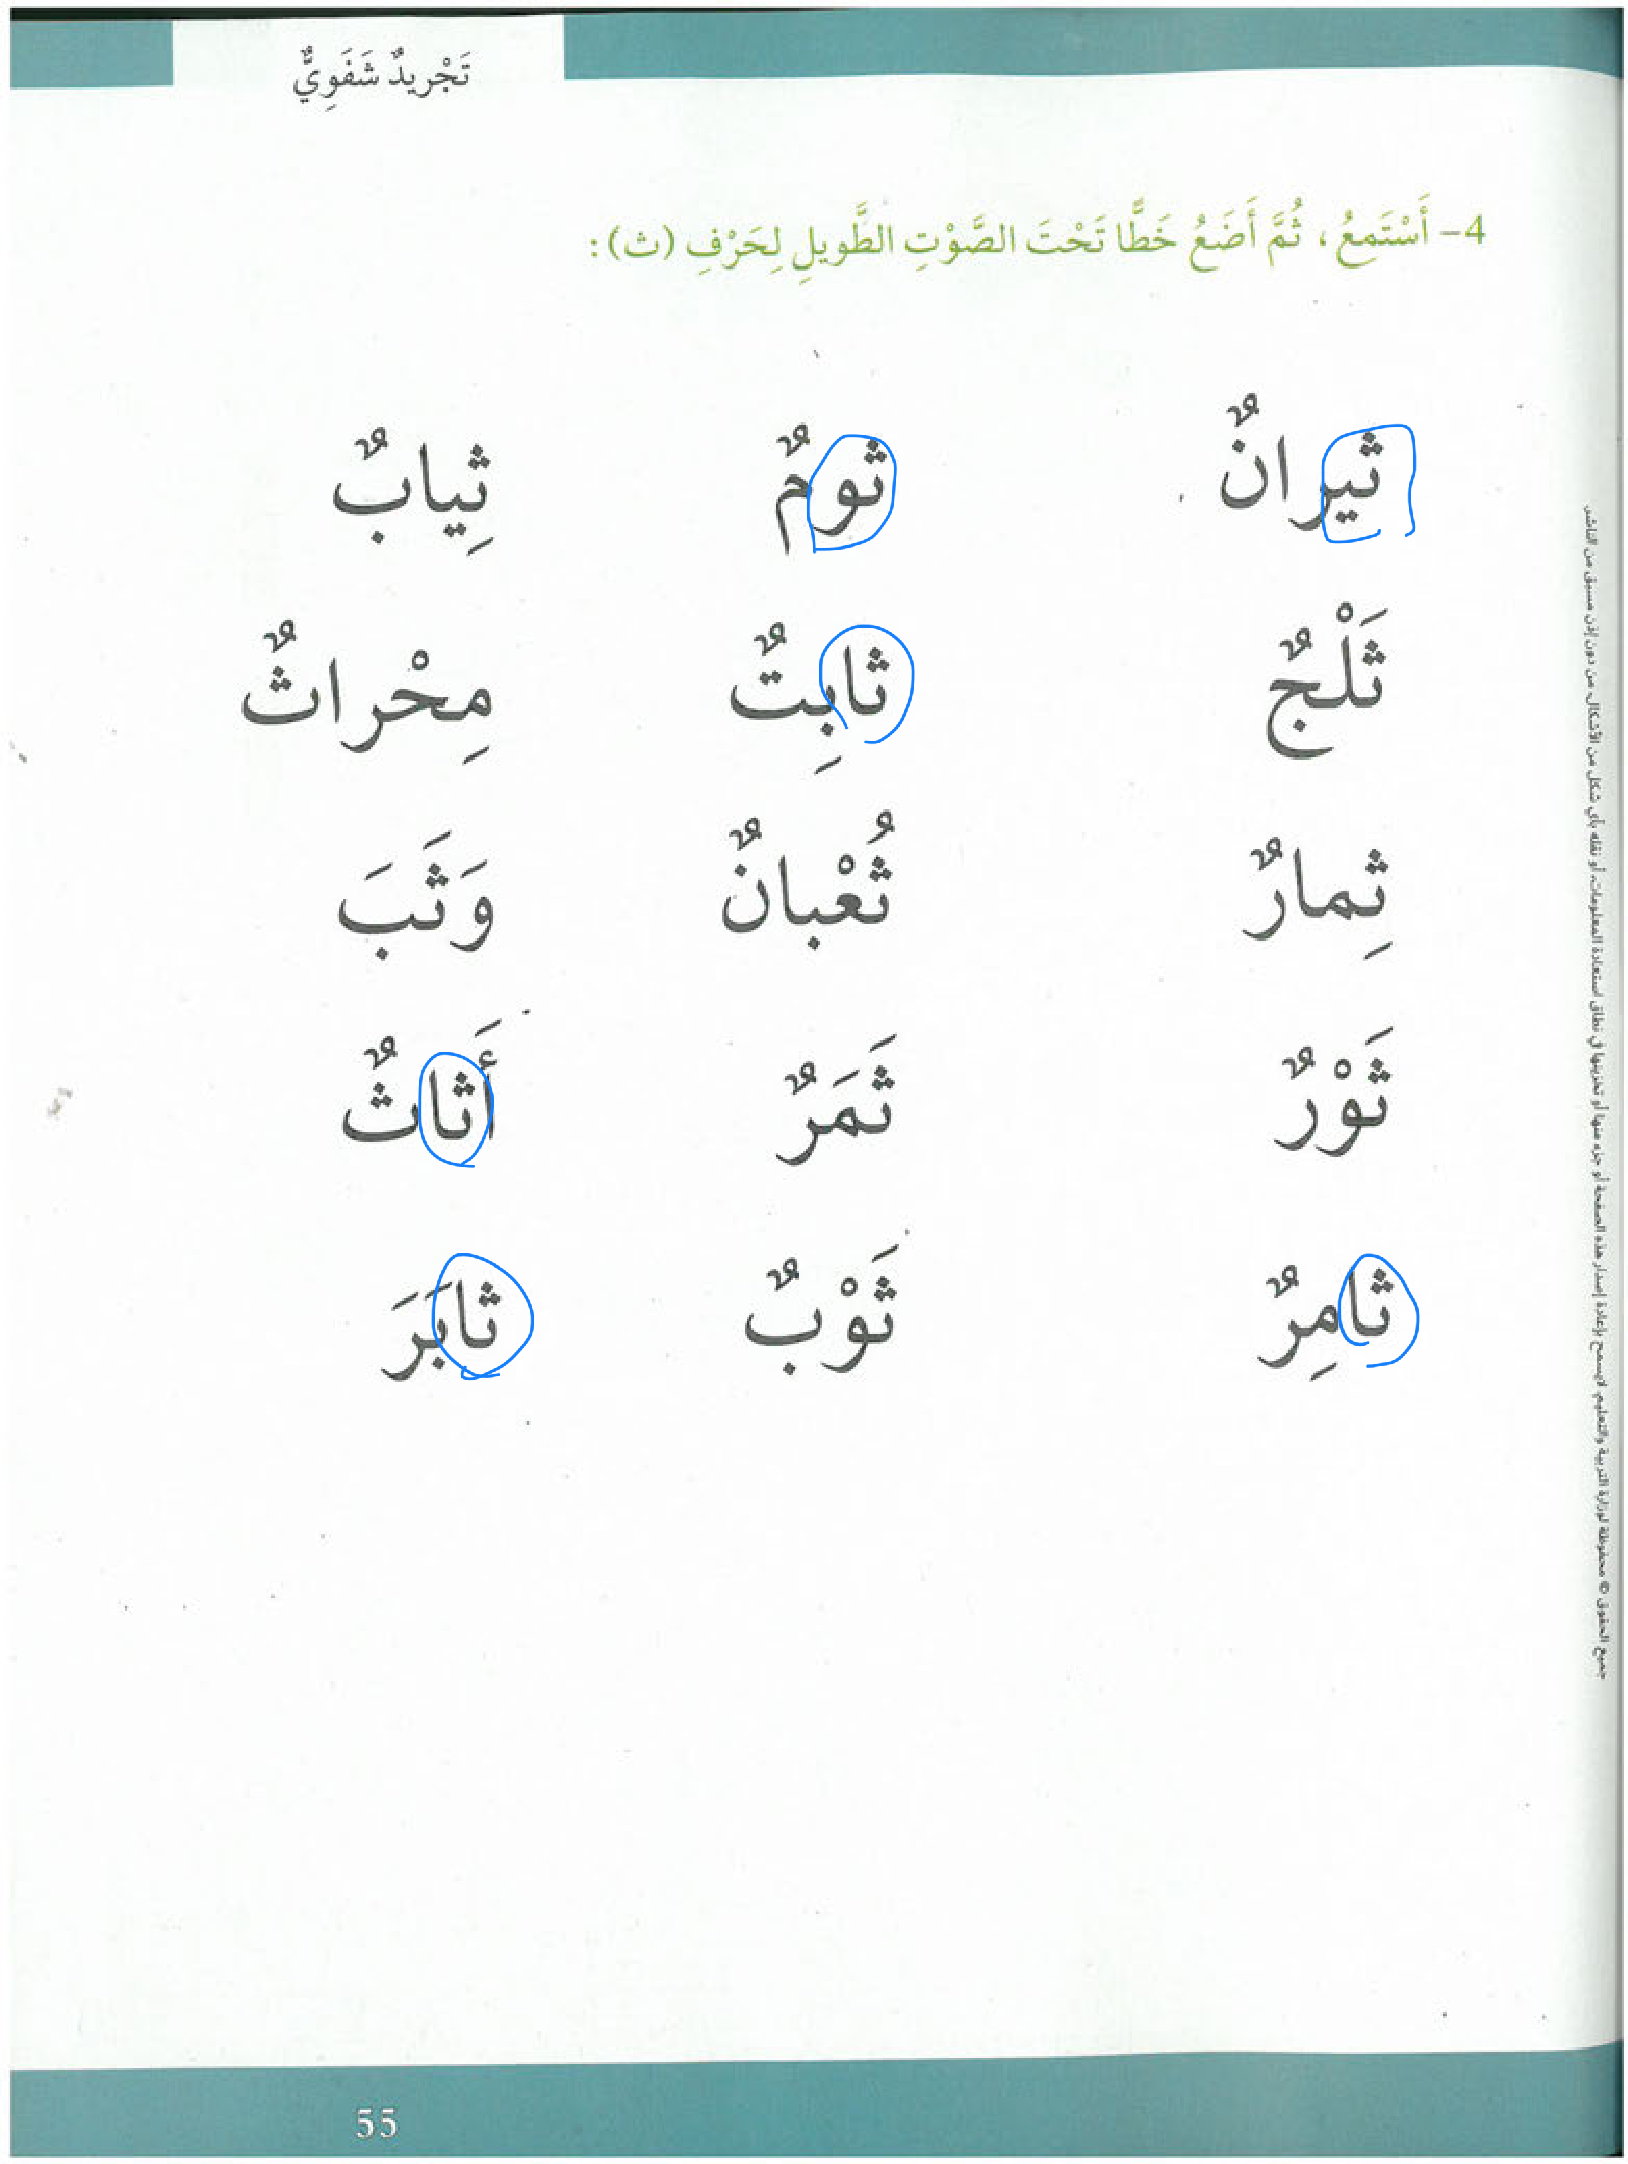 تَجْريدٌ شَفَوِيٌّ
4- أَسْتَمِعُ ، ثُمَّ أَضَعُ خَطًّا تَحْتَ الصَّوْتِ الطَّويلِ لِحَرْفِ (ث) :
ثيرانٌ ثومٌ ثِيابٌ
ثَلْجٌ ثابِتٌ مِحْراثٌ
ثِمارٌ ثُعْبانٌ وَثَبَ
ثَوْرٌ ثَمَرٌ أَثاثٌ
ثامِرٌ ثَوْبٌ ثابَرَ
جميع الحقوق © محفوظة لوزارة التربية والتعليم. لايسمح بإعادة إصدار هذه الصفحة أو جزء منها أو تخزينها في نطاق استعادة المعلومات، أو نقله بأي شكل من الأشكال، من دون إذن مسبق من الناشر.
55